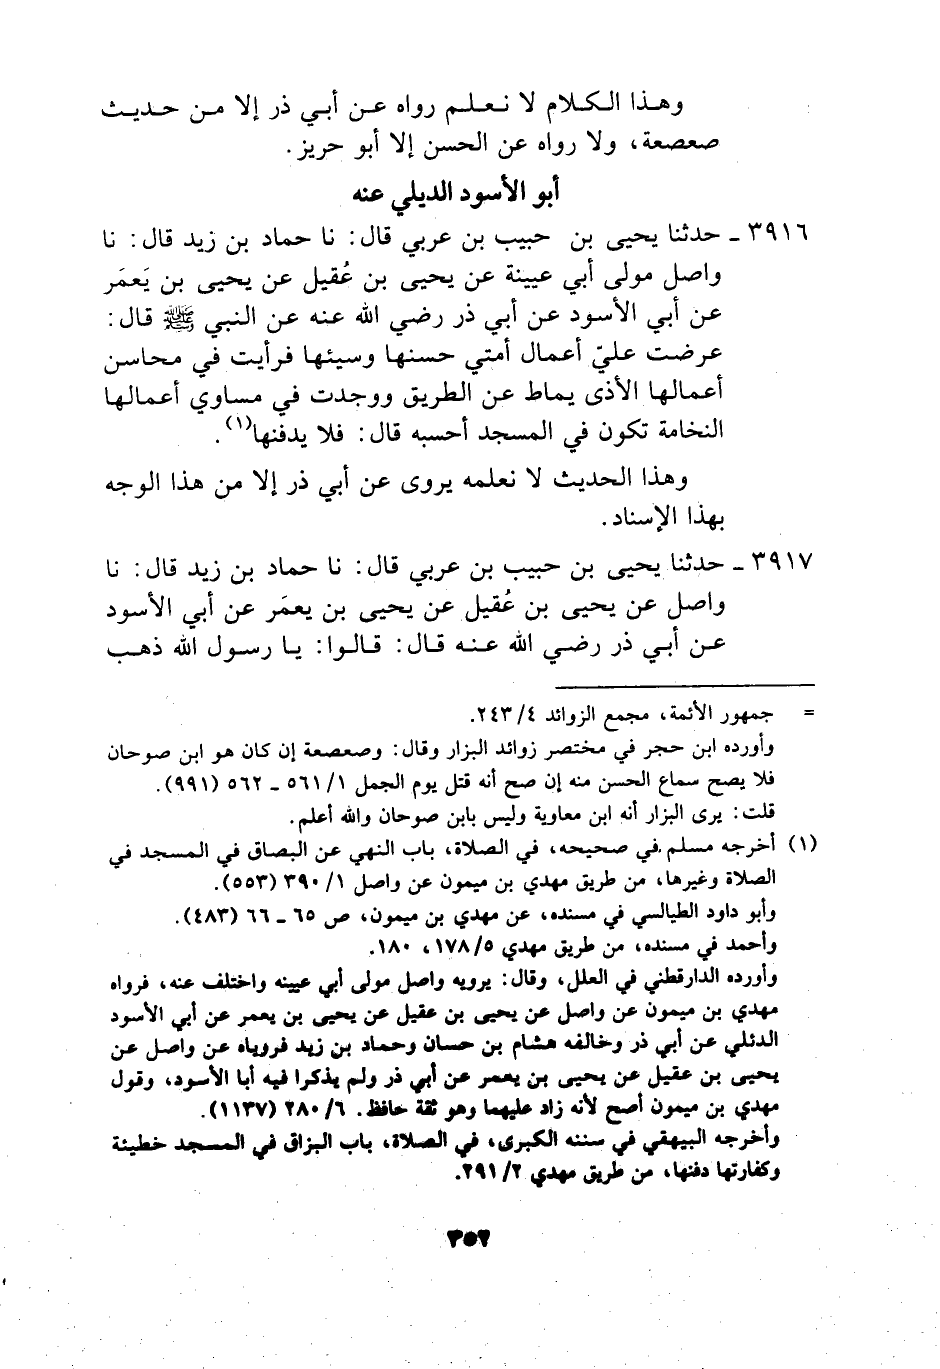 وهذا الكلام لا نعلم رواه عن أبي ذر إلا من حديث
صعصعة، ولا رواه عن الحسن إلا أبو حريز.
أبو الأسود الديلي عنه
٣٩١٦ ـ حدثنا يحيى بن حبيب بن عربي قال: نا حماد بن زيد قال: نا
واصل مولى أبي عيينة عن يحيى بن عُقيل عن يحيى بن يَعمَر
عن أبي الأسود عن أبي ذر رضي الله عنه عن النبي ﷺ قال:
عرضت عليّ أعمال أمتي حسنها وسيئها فرأيت في محاسن
أعمالها الأذى يماط عن الطريق ووجدت في مساوي أعمالها
النخامة تكون في المسجد أحسبه قال: فلا يدفنها(١).
وهذا الحديث لا نعلمه يروى عن أبي ذر إلا من هذا الوجه
بهذا الإسناد.
٣٩١٧ ـ حدثنا يحيى بن حبيب بن عربي قال: نا حماد بن زيد قال: نا
واصل عن يحيى بن عُقيل عن يحيى بن يعمَر عن أبي الأسود
عن أبي ذر رضي الله عنه قال: قالوا: يا رسول الله ذهب
= جمهور الأئمة، مجمع الزوائد ٤/ ٢٤٣.
وأورده ابن حجر في مختصر زوائد البزار وقال: وصعصعة إن كان هو ابن صوحان
فلا يصح سماع الحسن منه إن صح أنه قتل يوم الجمل ١/ ٥٦١ ـ ٥٦٢ (٩٩١).
قلت: يرى البزار أنه ابن معاوية وليس بابن صوحان والله أعلم.
(١) أخرجه مسلم في صحيحه، في الصلاة، باب النهي عن البصاق في المسجد في
الصلاة وغيرها، من طريق مهدي بن ميمون عن واصل ١/ ٣٩٠ (٥٥٣).
وأبو داود الطيالسي في مسنده، عن مهدي بن ميمون، ص ٦٥ ـ ٦٦ (٤٨٣).
وأحمد في مسنده، من طريق مهدي ٥/ ١٧٨، ١٨٠.
وأورده الدارقطني في العلل، وقال: يرويه واصل مولى أبي عيينه واختلف عنه، فرواه
مهدي بن ميمون عن واصل عن يحيى بن عقيل عن يحيى بن يعمر عن أبي الأسود
الدئلي عن أبي ذر وخالفه هشام بن حسان وحماد بن زيد فروياه عن واصل عن
يحيى بن عقيل عن يحيى بن يعمر عن أبي ذر ولم يذكرا فيه أبا الأسود، وقول
مهدي بن ميمون أصح لأنه زاد عليهما وهو ثقة حافظ. ٦/ ٢٨٠ (١١٣٧).
وأخرجه البيهقي في سننه الكبرى، في الصلاة، باب البزاق في المسجد خطيئة
وكفارتها دفنها، من طريق مهدي ٢/ ٢٩١.
٣٥٢